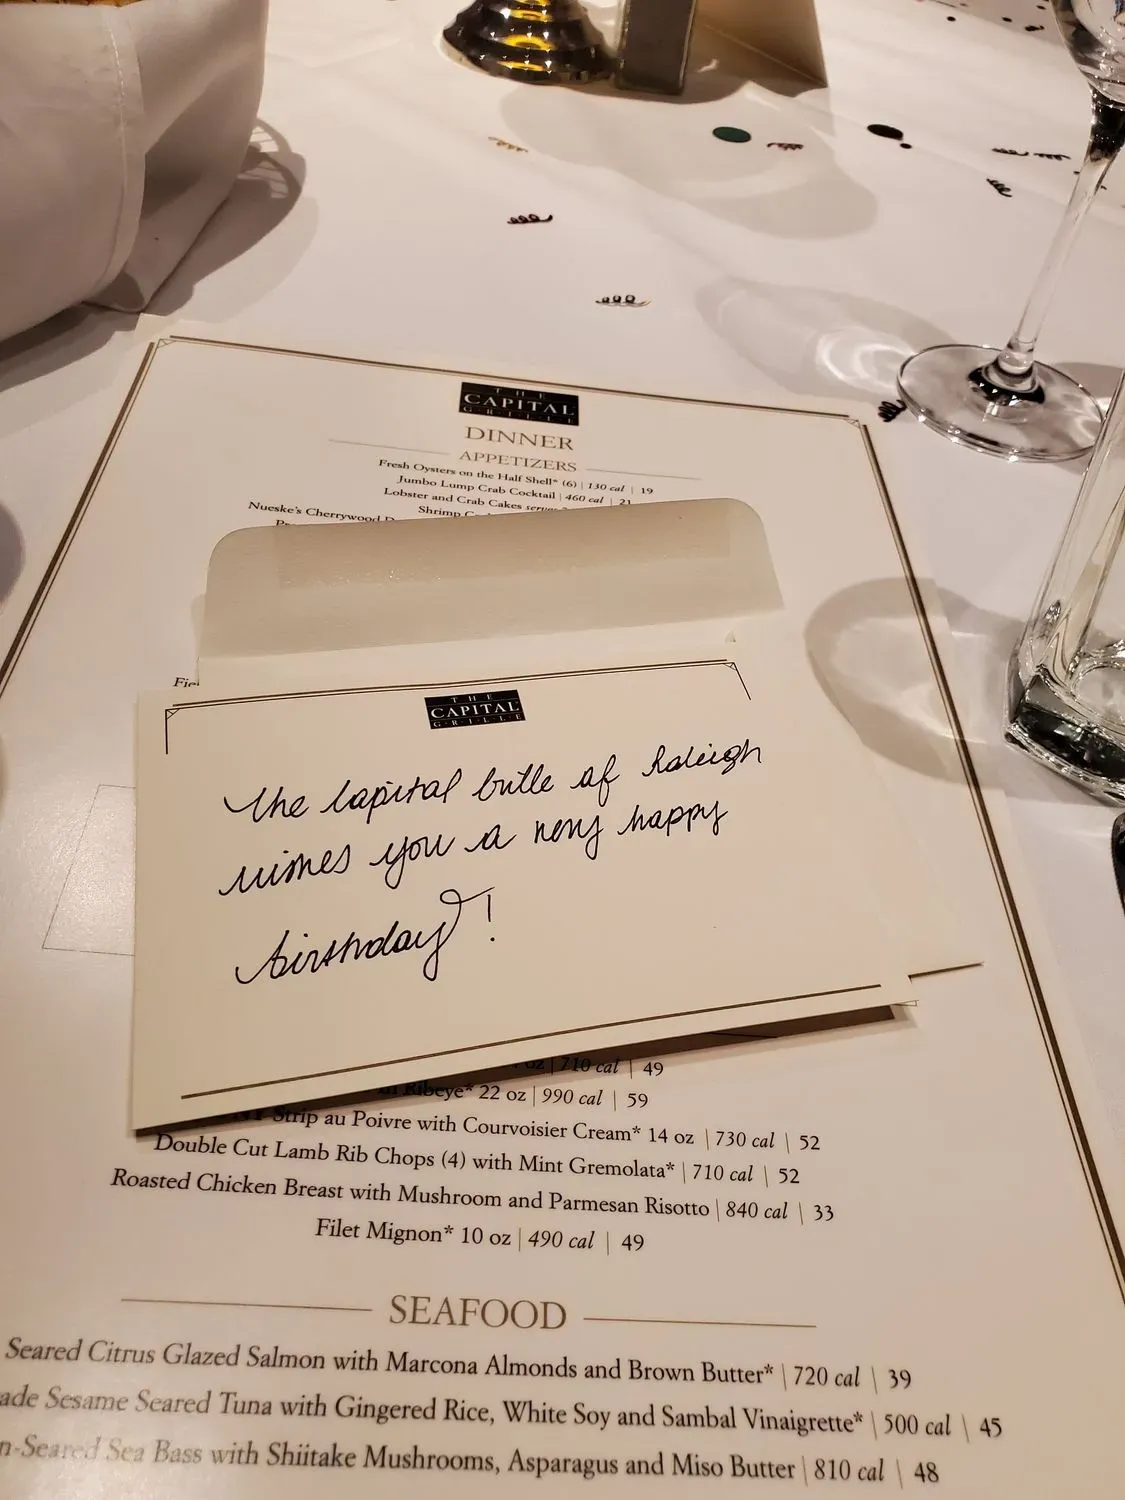 THE
CAPITAL
GRILLE
DINNER
APPETIZERS
Fresh Oysters on the Half Shell* (6) | 130 cal | 19
Jumbo Lump Crab Cocktail | 460 cal | 21
Lobster and Crab Cakes
Nueske's Cherrywood
Shrimp
THE
CAPITAL
GRILLE
The Capital Grille of Raleigh
wishes you a very happy
birthday!
oz | 710 cal | 49
Ribeye* 22 oz | 990 cal | 59
Strip au Poivre with Courvoisier Cream* 14 oz | 730 cal | 52
Double Cut Lamb Rib Chops (4) with Mint Gremolata* | 710 cal | 52
Roasted Chicken Breast with Mushroom and Parmesan Risotto | 840 cal | 33
Filet Mignon* 10 oz | 490 cal | 49
SEAFOOD
Seared Citrus Glazed Salmon with Marcona Almonds and Brown Butter* | 720 cal | 39
Sesame Seared Tuna with Gingered Rice, White Soy and Sambal Vinaigrette* | 500 cal | 45
Seared Sea Bass with Shiitake Mushrooms, Asparagus and Miso Butter | 810 cal | 48